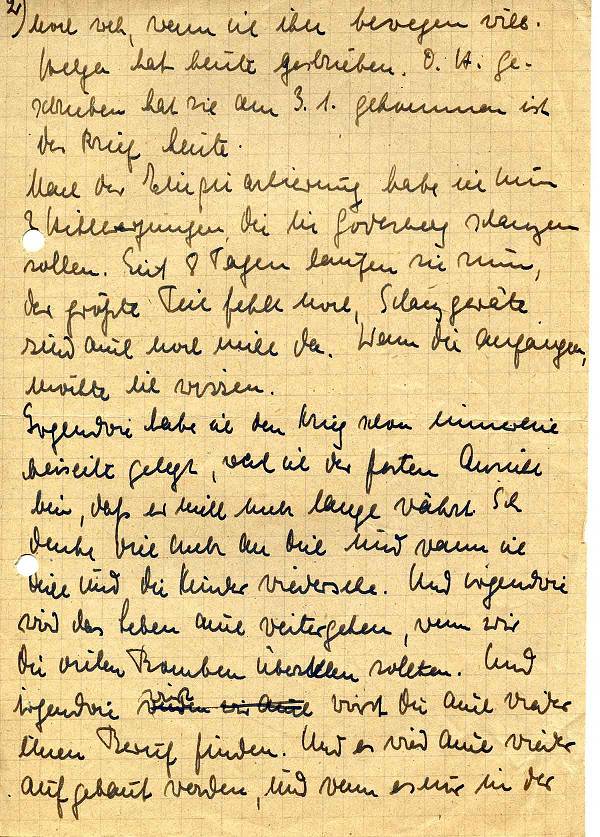 2)
noch weh, wenn ich ihn bewegen will.
Helga hat heute geschrieben. D. H. ge-
schrieben hat sie am 3. 1. gekommen ist
der Brief heute.
Nach der Einquartierung habe ich nun
2 die in Godesberg schanzen
sollen. Seit 8 Tagen laufen sie nun,
der größte Teil fehlt noch, Schanzgeräte
sind auch noch nicht da. Wann die anfangen,
möchte ich wissen.
Irgendwie habe ich den Krieg schon innerlich
beiseite gelegt, weil ich der festen Ansicht
bin, daß er nicht mehr lange währt. Ich
denke viel mehr an dich und wann ich
dich und die Kinder wiedersehe. Und irgendwie
wird das Leben auch weitergehen, wenn wir
die vielen Bomben sollten. Und
irgendwie wirst wirst du auch wieder
einen Beruf finden. Und es wird auch wieder
aufgebaut werden, und wenn es nur in der